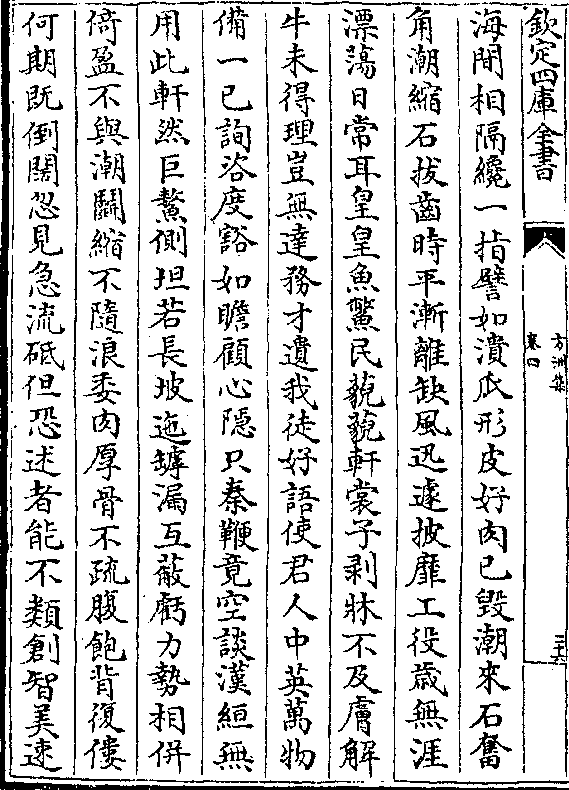 欽定四庫全書
方洲集
卷四
三十六
海間相隔纔一指譬如潰瓜形皮好肉已毀潮來石奮
角潮縮石拔齒時平漸離缺風迅遽披靡工役歲無涯
漂蕩日常耳皇皇魚鱉民藐藐軒裳子剥牀不及膚解
牛未得理豈無達務才遺我徒好語使君人中英萬物
備一已詢咨度豁如瞻顧心隱只秦鞭竟空談漢絙無
用此軒然巨鰲側坦若長坡迤罅漏互蔽虧力勢相併
倚盈不與潮鬬縮不隨浪委肉厚骨不疏腹飽背復僂
何期既倒闊忽見急流砥但恐述者能不類創智美速